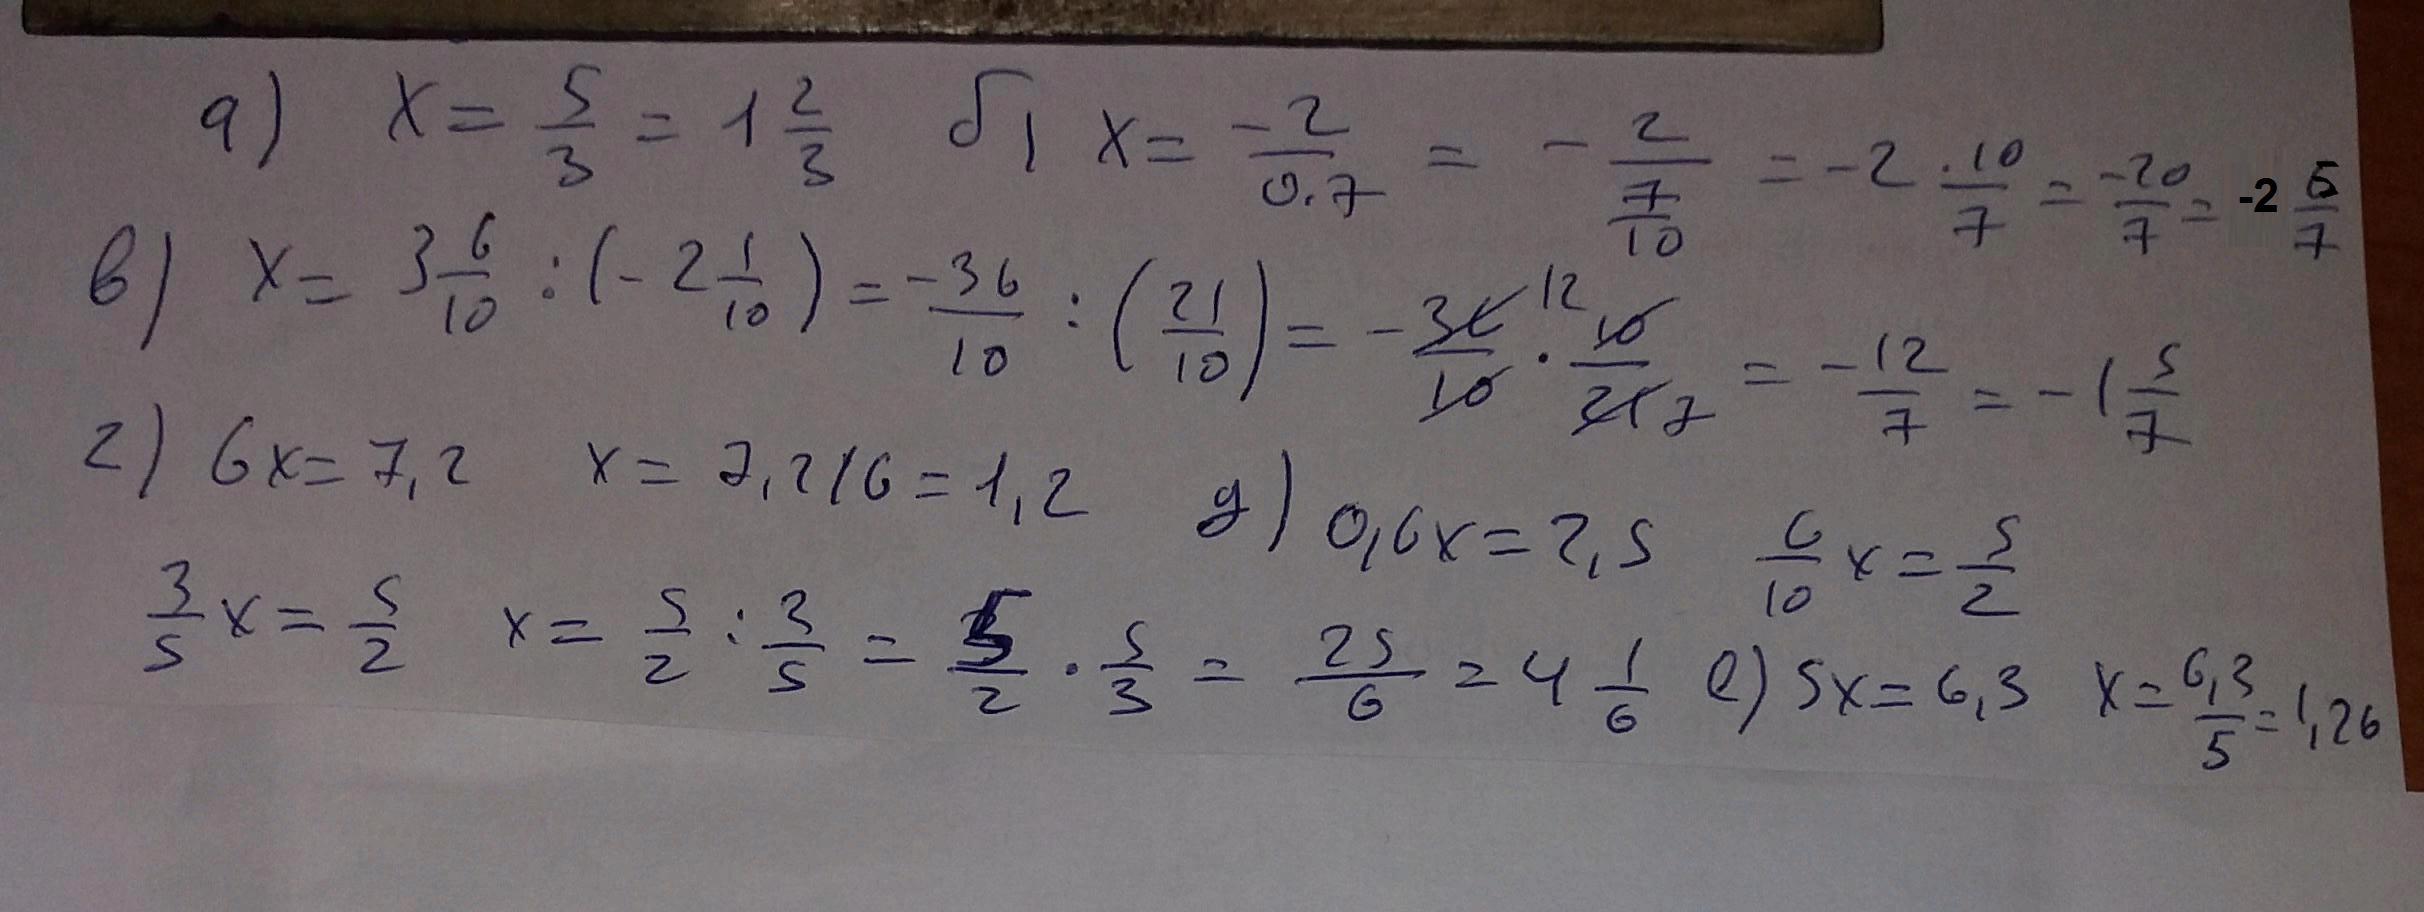 а) x = 5/3 = 1 2/3 б) x = -2/0.7 = - 2/(7/10) = -2 · 10/7 = -20/7 = -2 6/7
в) x = 3 6/10 : (-2 1/10) = -36/10 : (21/10) = - 36/10 12 · 10/21 7 = -12/7 = -1 5/7
г) 6x = 7,2 x = 7,2/6 = 1,2 д) 0,6x = 2,5 6/10 x = 5/2
3/5 x = 5/2 x = 5/2 : 3/5 = 5/2 · 5/3 = 25/6 = 4 1/6 е) 5x = 6,3 x = 6,3/5 = 1,26